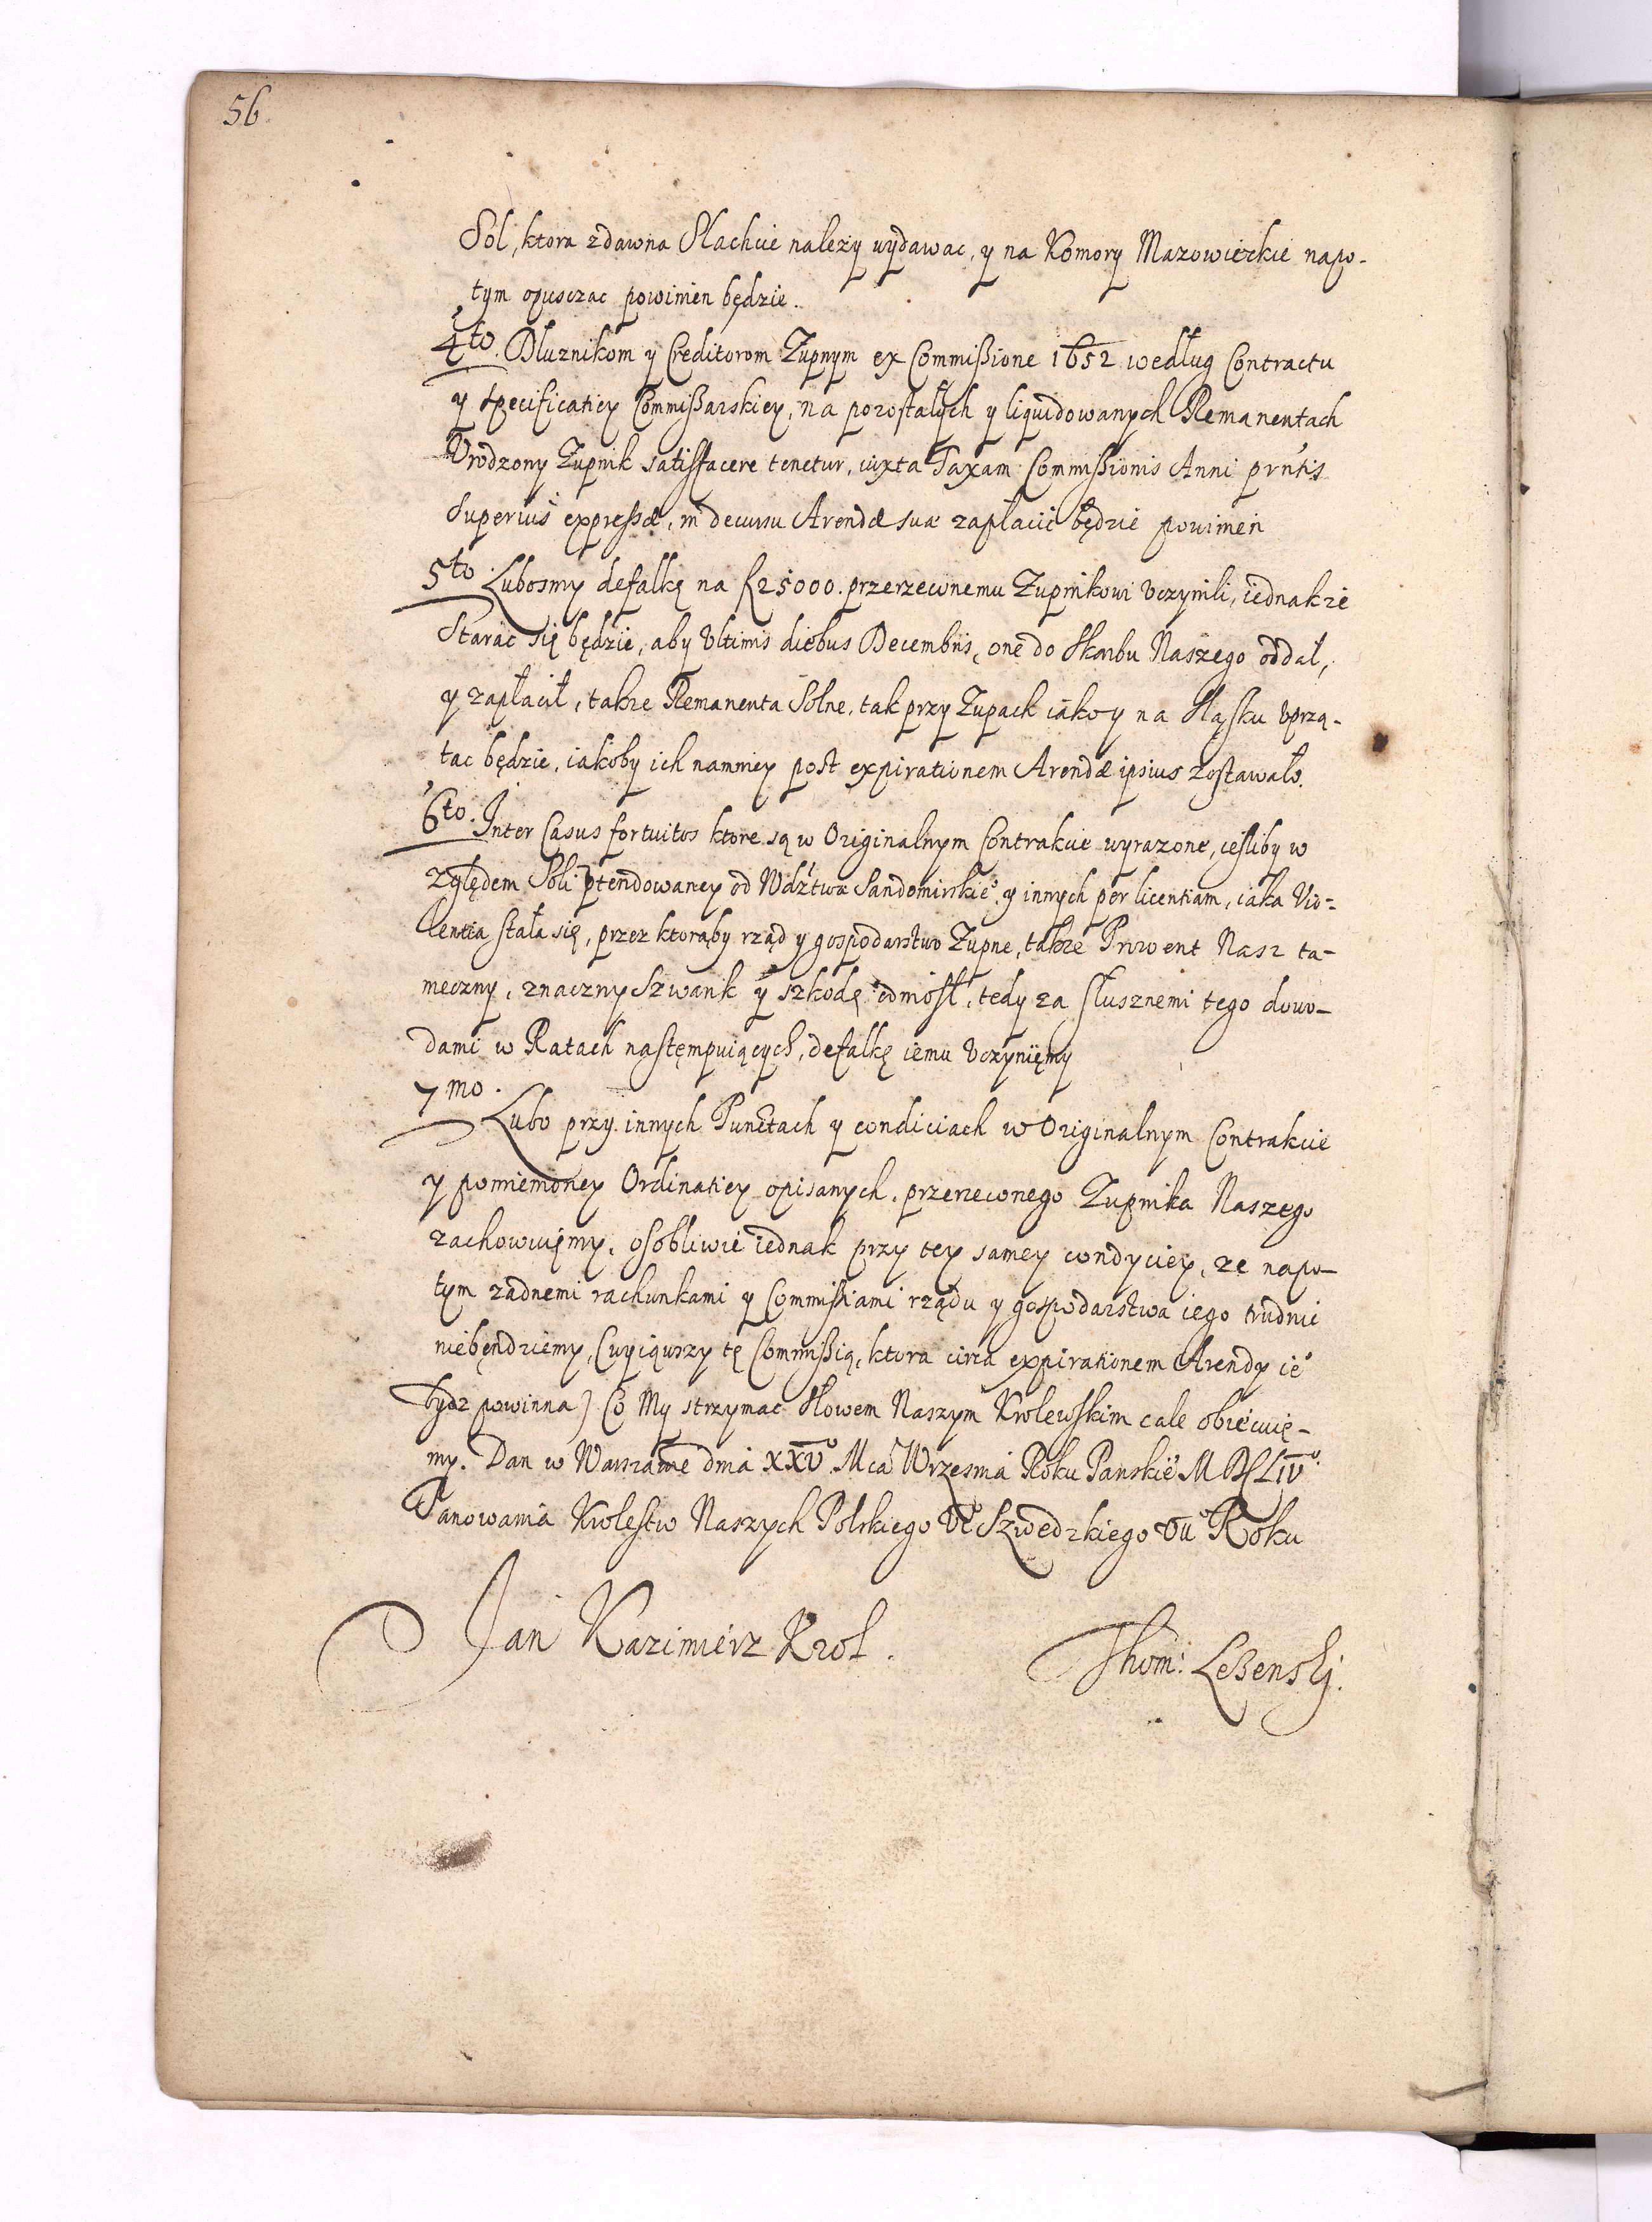 56.
Sol, ktora zdawna Slachcie nalezy wydawac, y na Komory Mazowieckie napo-
tym opusczac powinien będzie.
4to. Dluznikom y Creditorom Zupnym ex Commißione 1652 według Contractu
y specificatiey Commißarskiey, na pozostałych y liquidowanych Remanentach
Vrodzony Zupnik satisfacere tenetur, iuxta Taxam Commißionis Anni prntis
superius expressæ, in decursu Arendæ suæ zapłacic będzie powinien
5to. Lubosmy defalkę na f 25000. przerzeconemu Zupnikowi vczynili, iednakze
starac się będzie, aby Vltimis diebus Decembris, one do Skarbu Naszego oddał,
y zapłacił, takze Remanenta Solne, tak przy Zupach iako y na Sląsku vprzą-
tac będzie, iakoby ich namniey post expirationem Arendæ ipsius zostawało.
6to. Inter Casus fortuitos ktore są w Originalnym Contrakcie wyrazone, iesliby w
zględem Soli ptendowaney od Wdztwa Sandomirskie, y innych per licentiam, iaka Vio-
lentia stała się, przez ktoraby rząd y gospodarstwo Zupne, takze Prowent Nasz ta-
meczny, znaczny Szwank y szkodę odniosł, tedy za słusznemi tego dowo-
dami w Ratach następuiących, defalkę iemu vczyniemy
7mo.
Lubo przy innych Punctach y condiciach w Originalnym Contrakcie
y pomienioney Ordinatiey opisanych, przerzeconego Zupnika Naszego
zachowuięmy, osobliwie iednak przy tey samey condyciey, ze napo-
tym zadnemi rachunkami y Commißiami rządu y gospodarstwa iego trudnic
niebęndziemy, (wyiąwszy tę Commißią, ktora circa expirationem Arendy ie
bydz powinna) Co My strzymac Słowem Naszym Krolewskim cale obiecuię-
my. Dan w Warszawie dnia XXV. Mca Wrzesnia Roku Panskie MDCLIV
Panowania Krolestw Naszych Polskiego VI Szwedzkiego VII Roku
Jan Kazimierz Krol.
Thom: Leßenskj.